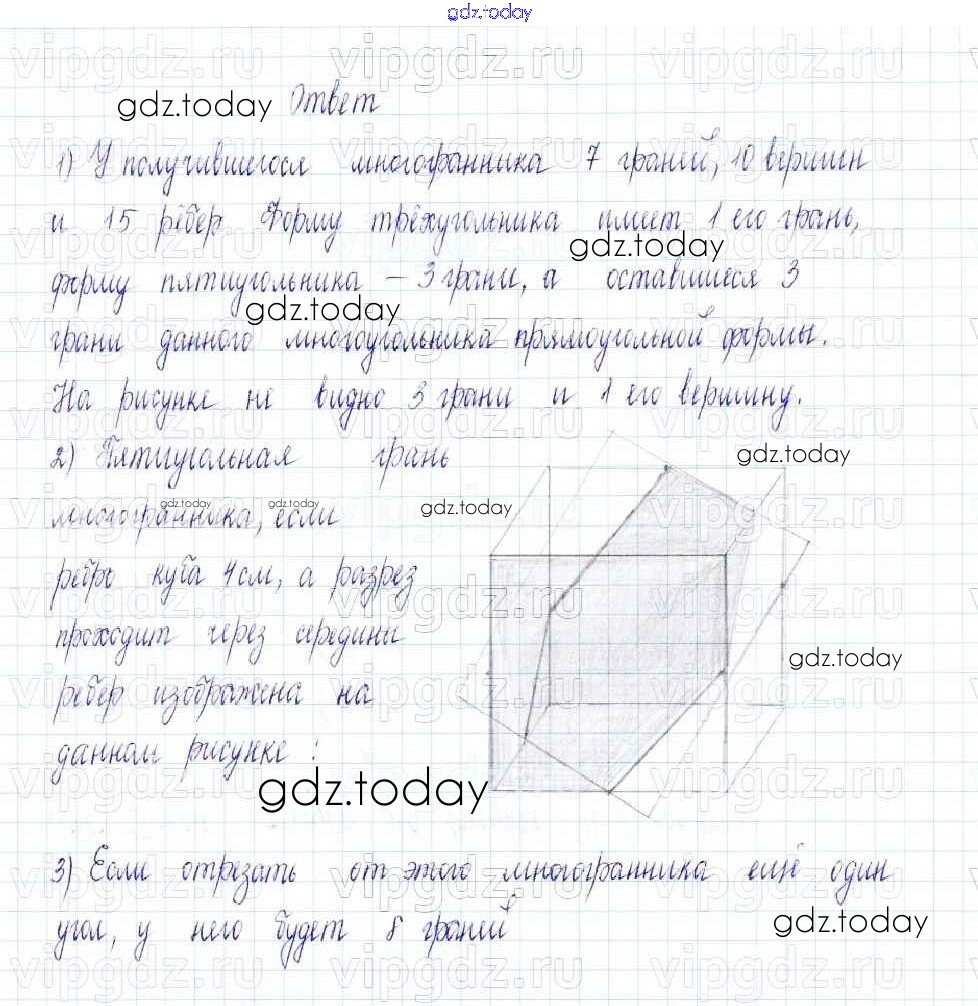 gdz.today
gdz.today Ответ
1) У получившегося многогранника 7 граней, 10 вершин
и 15 рёбер Форму трёхугольника имеет 1 его грань,
gdz.today
форму пятиугольника – 3 грани, а оставшиеся 3
gdz.today
грани данного многоугольника прямоугольной формы.
На рисунке не видно 3 грани и 1 его вершину.
2) Пятиугольная грань
gdz.today
многогранника, если
gdz.today gdz.today gdz.today
ребро куба 4 см, а разрез
проходит через середини
gdz.today
ребер изображена на
данном рисунке:
gdz.today
3) Если отрезать от этого многогранника ещё один
угол, у него будет 8 граней
gdz.today
vipgdz.ru